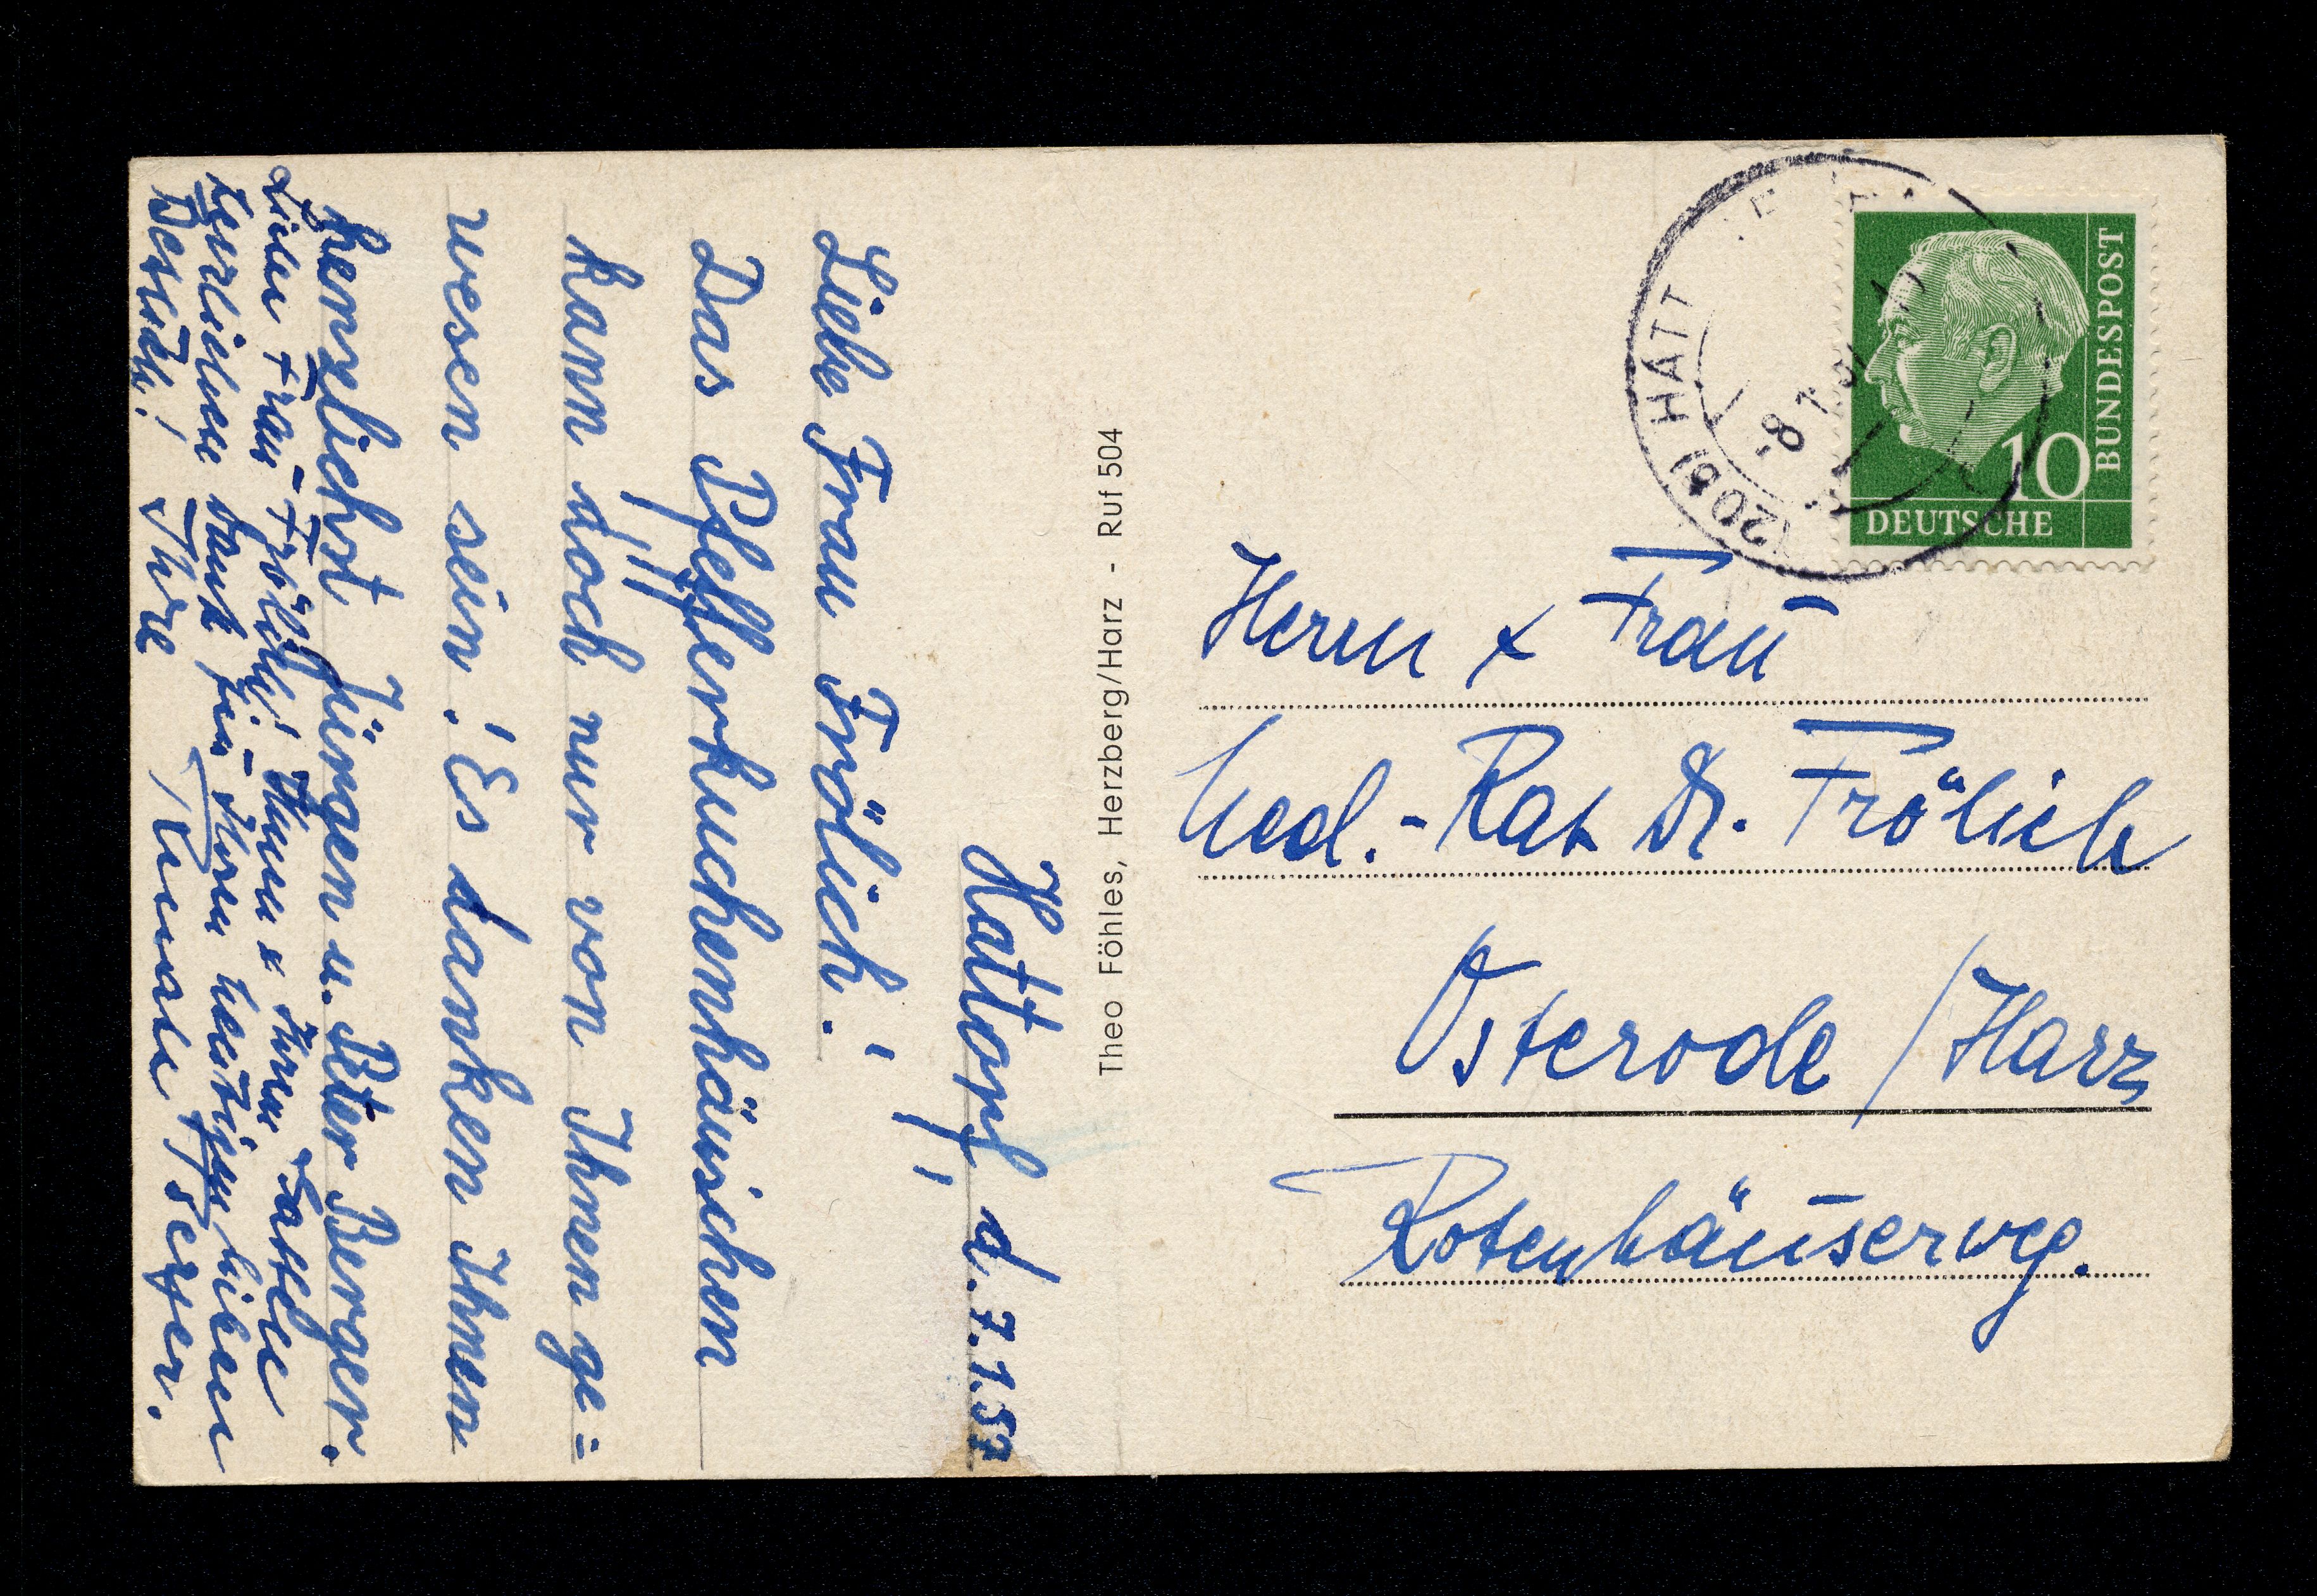 Hattorf, d. 7.1.57
Liebe Frau Frölich!
Das Pfefferkuchenhäuschen
kann doch nur von Ihnen ge=
wesen sein! Es danken Ihnen
herzlichst Jürgen u. Peter Berger.
Liebe Frau Frölich! Ihnen & Ihrem Gatten
herzlichen Dank für Ihren
Besuch! Ihre Berger.
Theo Föhles, Herzberg/Harz - Ruf 504
(20b) HATT
-8.1.57
10
DEUTSCHE
BUNDESPOST
Herrn & Frau
Med.-Rat Dr. Frölich
Osterode/Harz
Rotenhäuserweg.